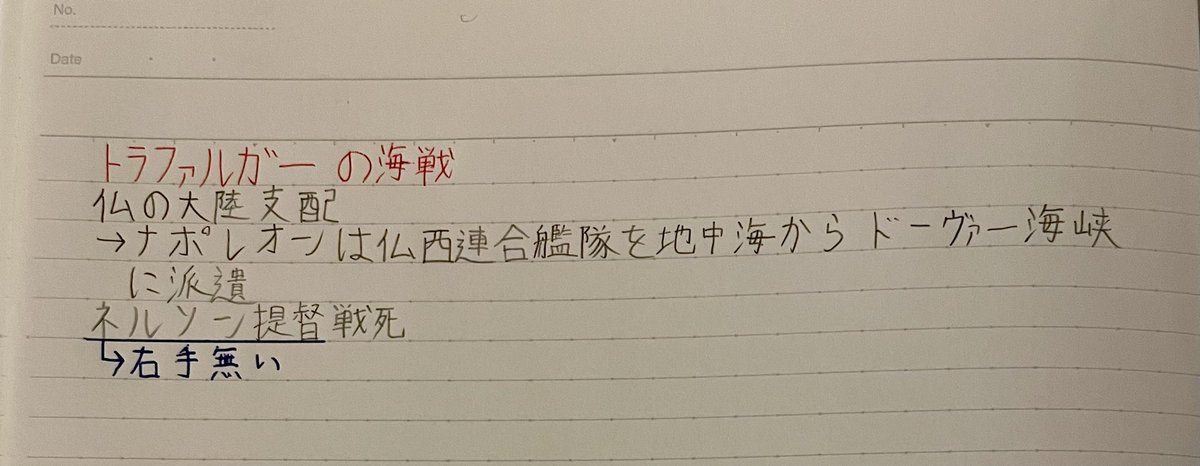 No.
Date
トラファルガーの海戦
仏の大陸支配
→ナポレオンは仏西連合艦隊を地中海からドーヴァー海峡
に派遣
ネルソン提督戦死
↳右手無い